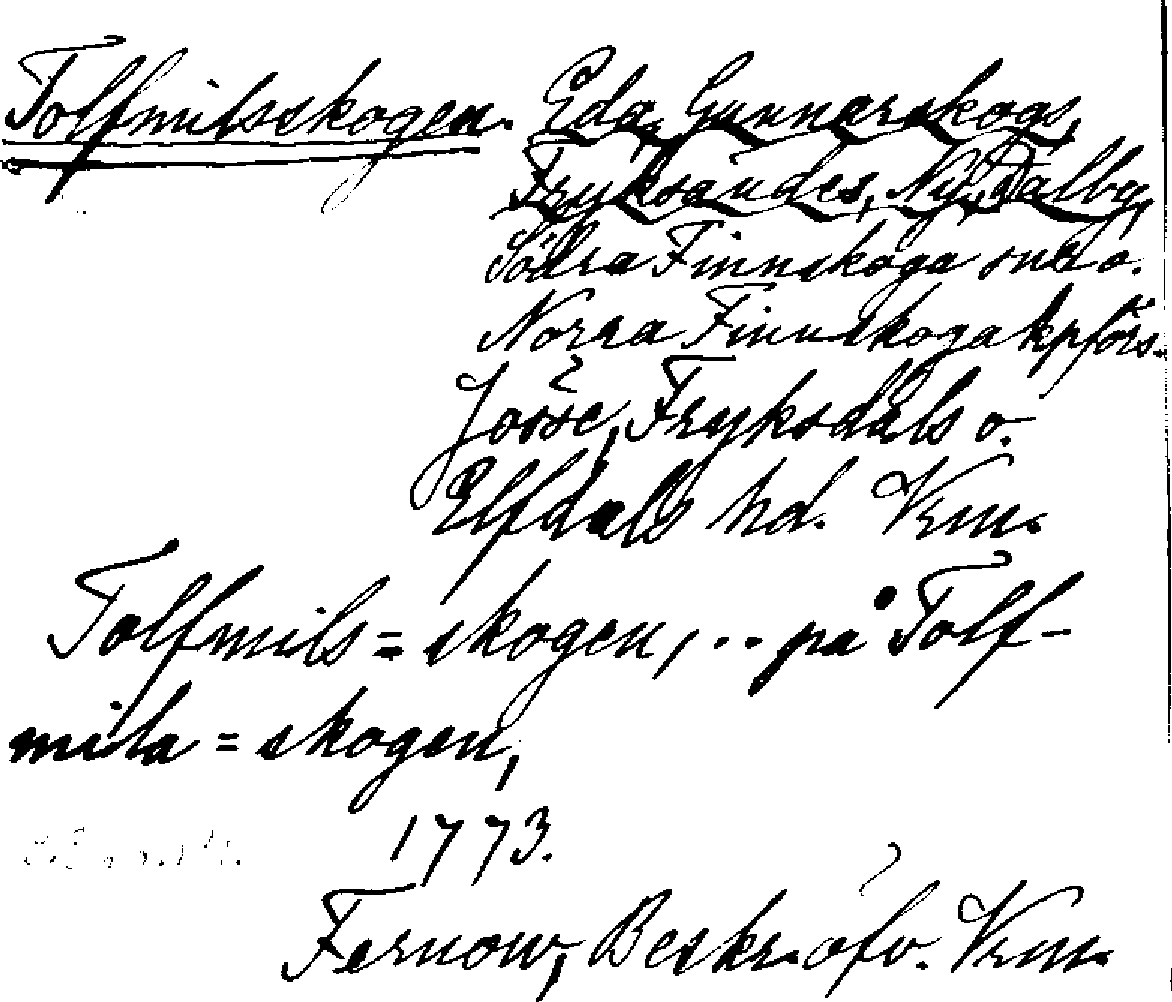 Tolfmilsskogen. Eda, Gunnarskogs,
Fryksändes, Ny, Dalby,
Södra Finnskoga o.
Norra Finnskoga kpförs.
Jösse, Fryksdals o.
Elfdals hd. Vrm.
Tolfmils=skogen, .. på Tolf-
mila=skogen,
1773.
Fernow, Beskr. öfv. Vrm.